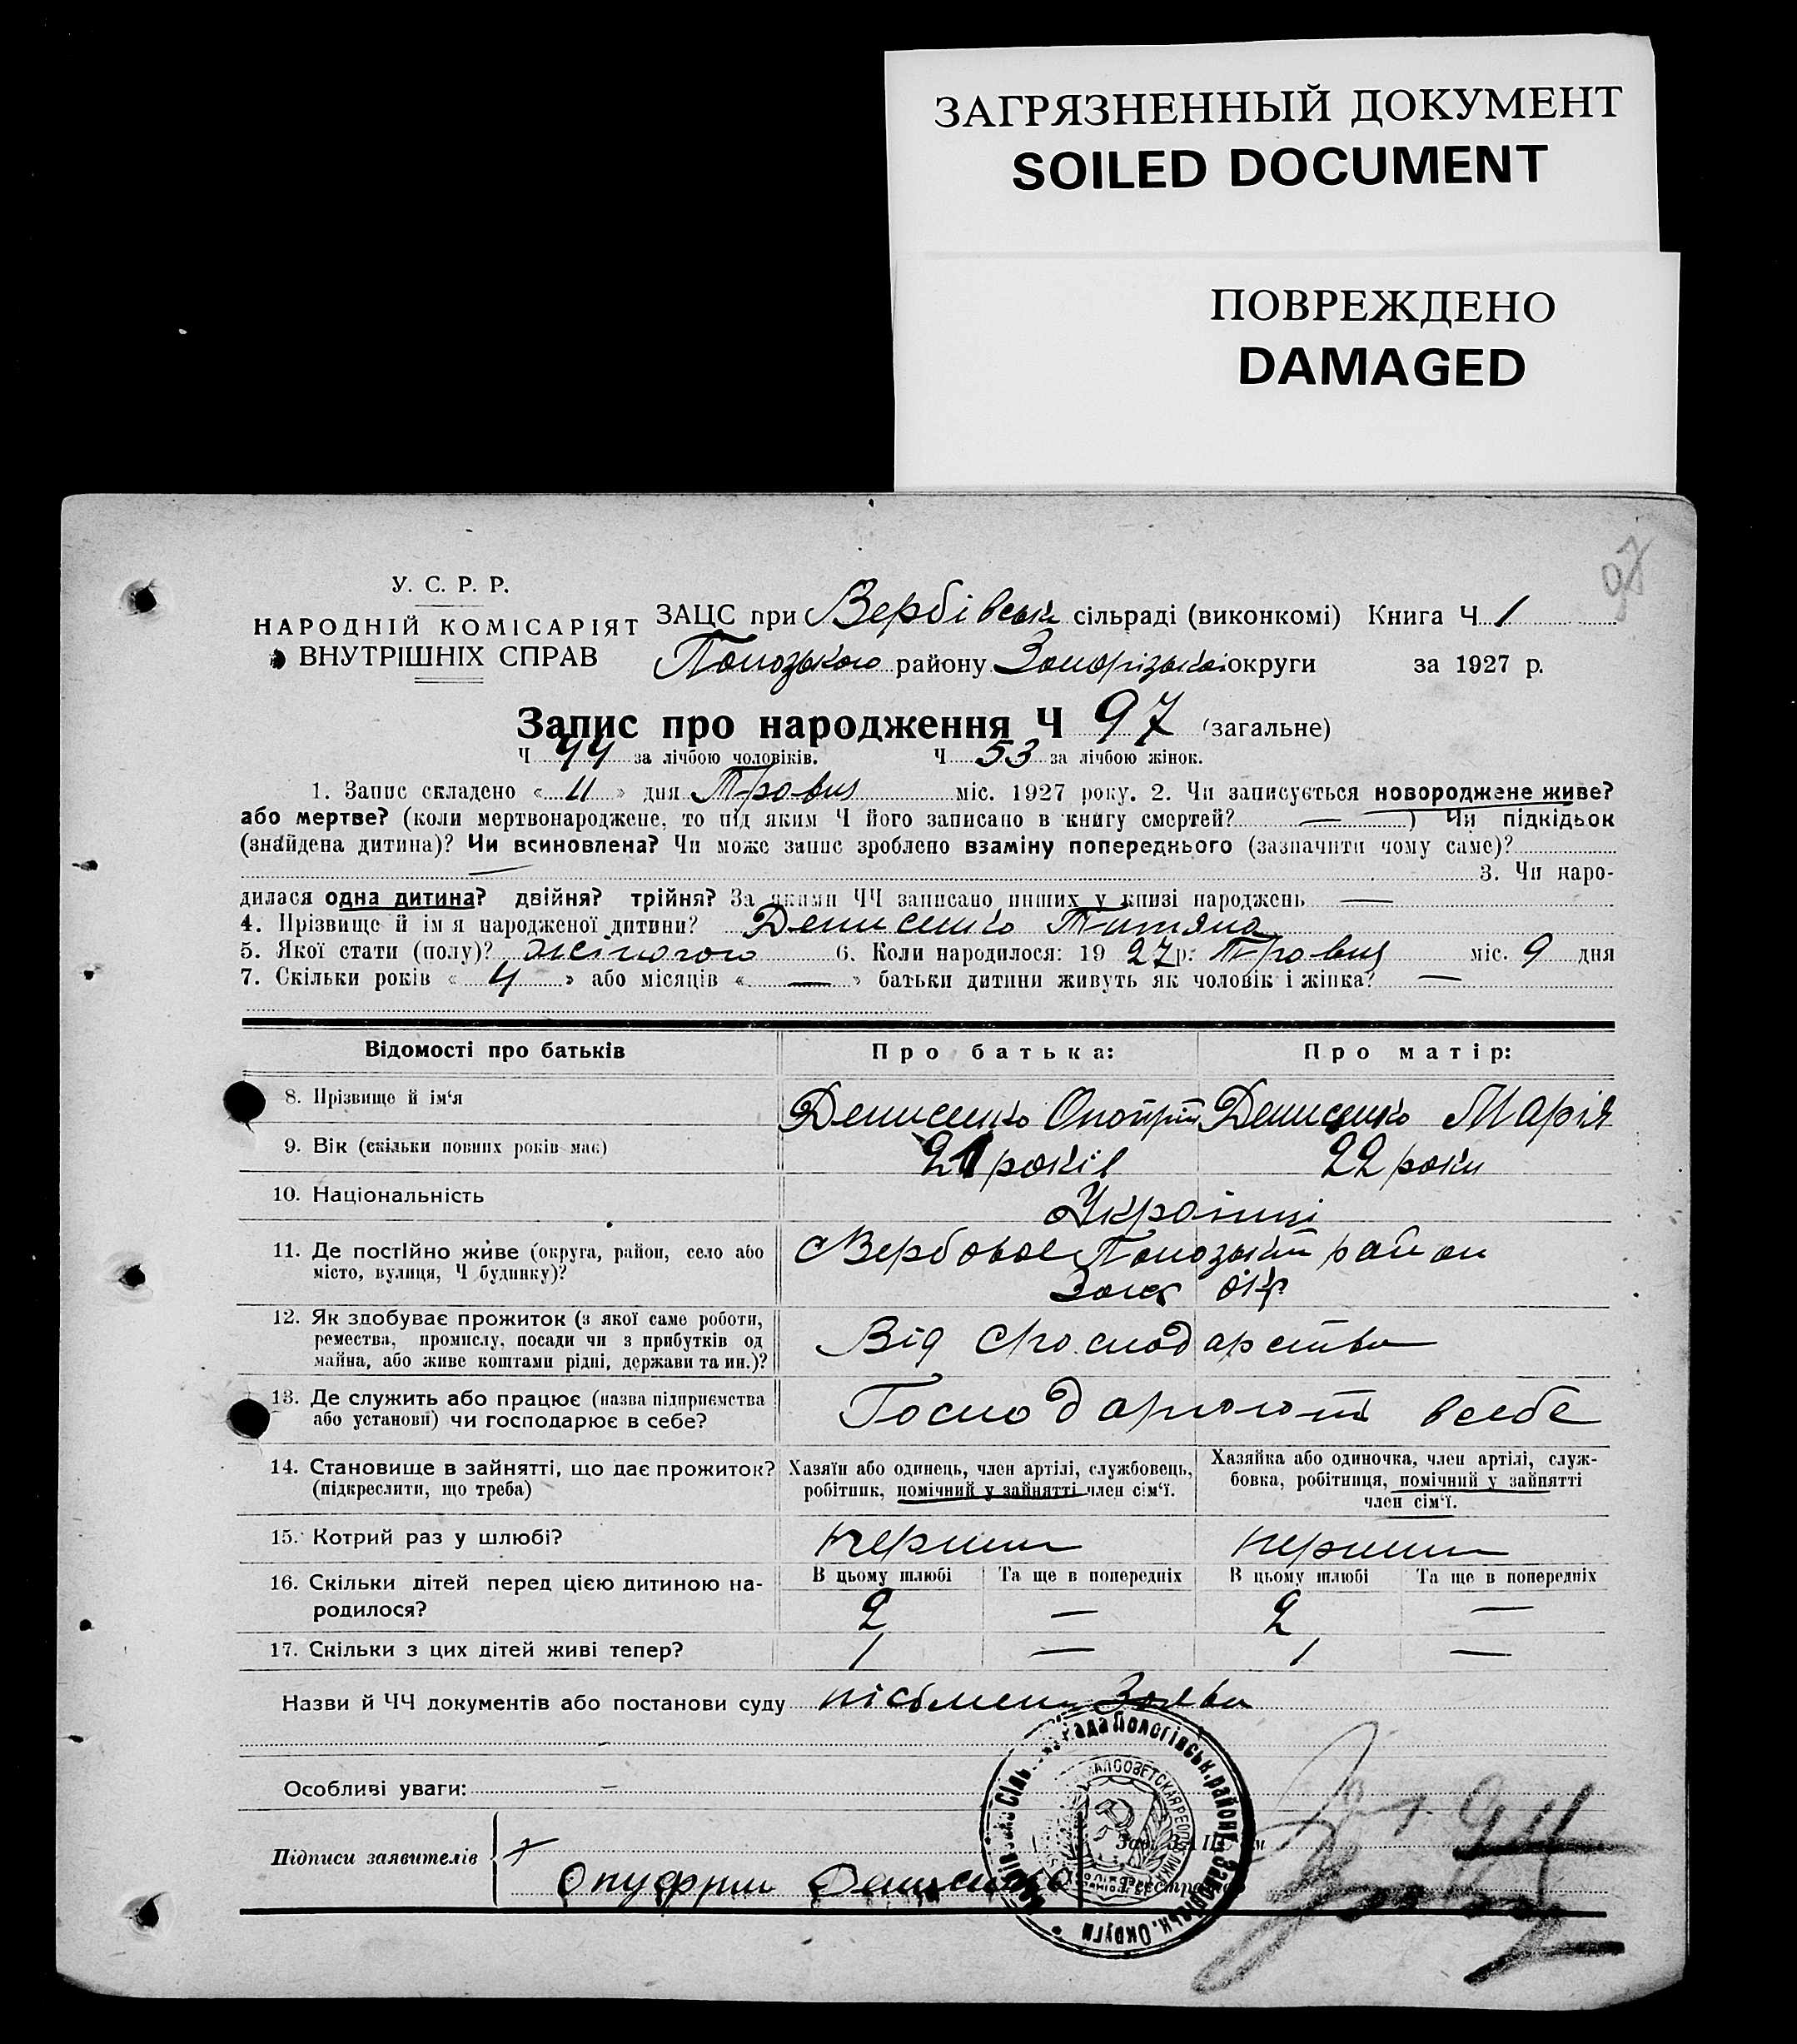 ЗАГРЯЗНЕННЫЙ ДОКУМЕНТ
SOILED DOCUMENT
ПОВРЕЖДЕНО
DAMAGED
97
У. С. Р. Р.
НАРОДНІЙ КОМІСАРІЯТ
ВНУТРІШНІХ СПРАВ
ЗАЦС при Вербівськ сільраді (виконкомі) Книга Ч 1
району Запорізької округи за 1927 р.
Запис про народження Ч 97 (загальне)
Ч 44 за лічбою чоловіків. Ч 53 за лічбою жінок.
1. Запис складено « 11 » дня Травня міс. 1927 року. 2. Чи записується новороджене живе?
або мертве? (коли мертвонароджене, то під яким Ч його записано в книгу смертей? — ) Чи підкідьок
(знайдена дитина)? Чи всиновлена? Чи може запис зроблено взаміну попереднього (зазначити чому саме)?
— 3. Чи наро-
дилася одна дитина? двійня? трійня? За якими ЧЧ записано инших у книзі народжень —
4. Прізвище й ім я народженої дитини? Денисенко Татяна
5. Якої стати (полу)? жіночого 6. Коли народилося: 19 27 р. Травня міс. 9 дня
7. Скільки років « 4 » або місяців « — » батьки дитини живуть як чоловік і жінка? —
Відомості про батьків Про батька: Про матір:
8. Прізвище й ім'я Денисенко Денисенко Марія
9. Вік (скільки повних років має) 21 років 22 роки
10. Національність Українці
11. Де постійно живе (округа, район, село або
місто, вулиця, Ч будинку)?
с Вербове район
окр
12. Як здобуває прожиток (з якої саме роботи,
ремества, промислу, посади чи з прибутків од
майна, або живе коштами рідні, держави та ин.)?
Від господарства
13. Де служить або працює (назва підприємства
або установи) чи господарює в себе?
Господарюють в себе
14. Становище в зайнятті, що дає прожиток?
(підкреслити, що треба)
Хазяїн або одинець, член артілі, службовець,
робітник, помічний у зайнятті член сім'ї.
Хазяйка або одиночка, член артілі, служ-
бовка, робітниця, помічний у зайнятті
член сім'ї.
15. Котрий раз у шлюбі? перший перший
16. Скільки дітей перед цією дитиною на-
родилося?
В цьому шлюбі Та ще в попередніх В цьому шлюбі Та ще в попередніх
2 — 2 —
17. Скільки з цих дітей живі тепер? 1 — 1 —
Назви й ЧЧ документів або постанови суду письмена Заява
Особливі уваги: —
Підписи заявителів
Онуфрии Денисенко
Рада Пологівськ. району Запоріжськ. Округи